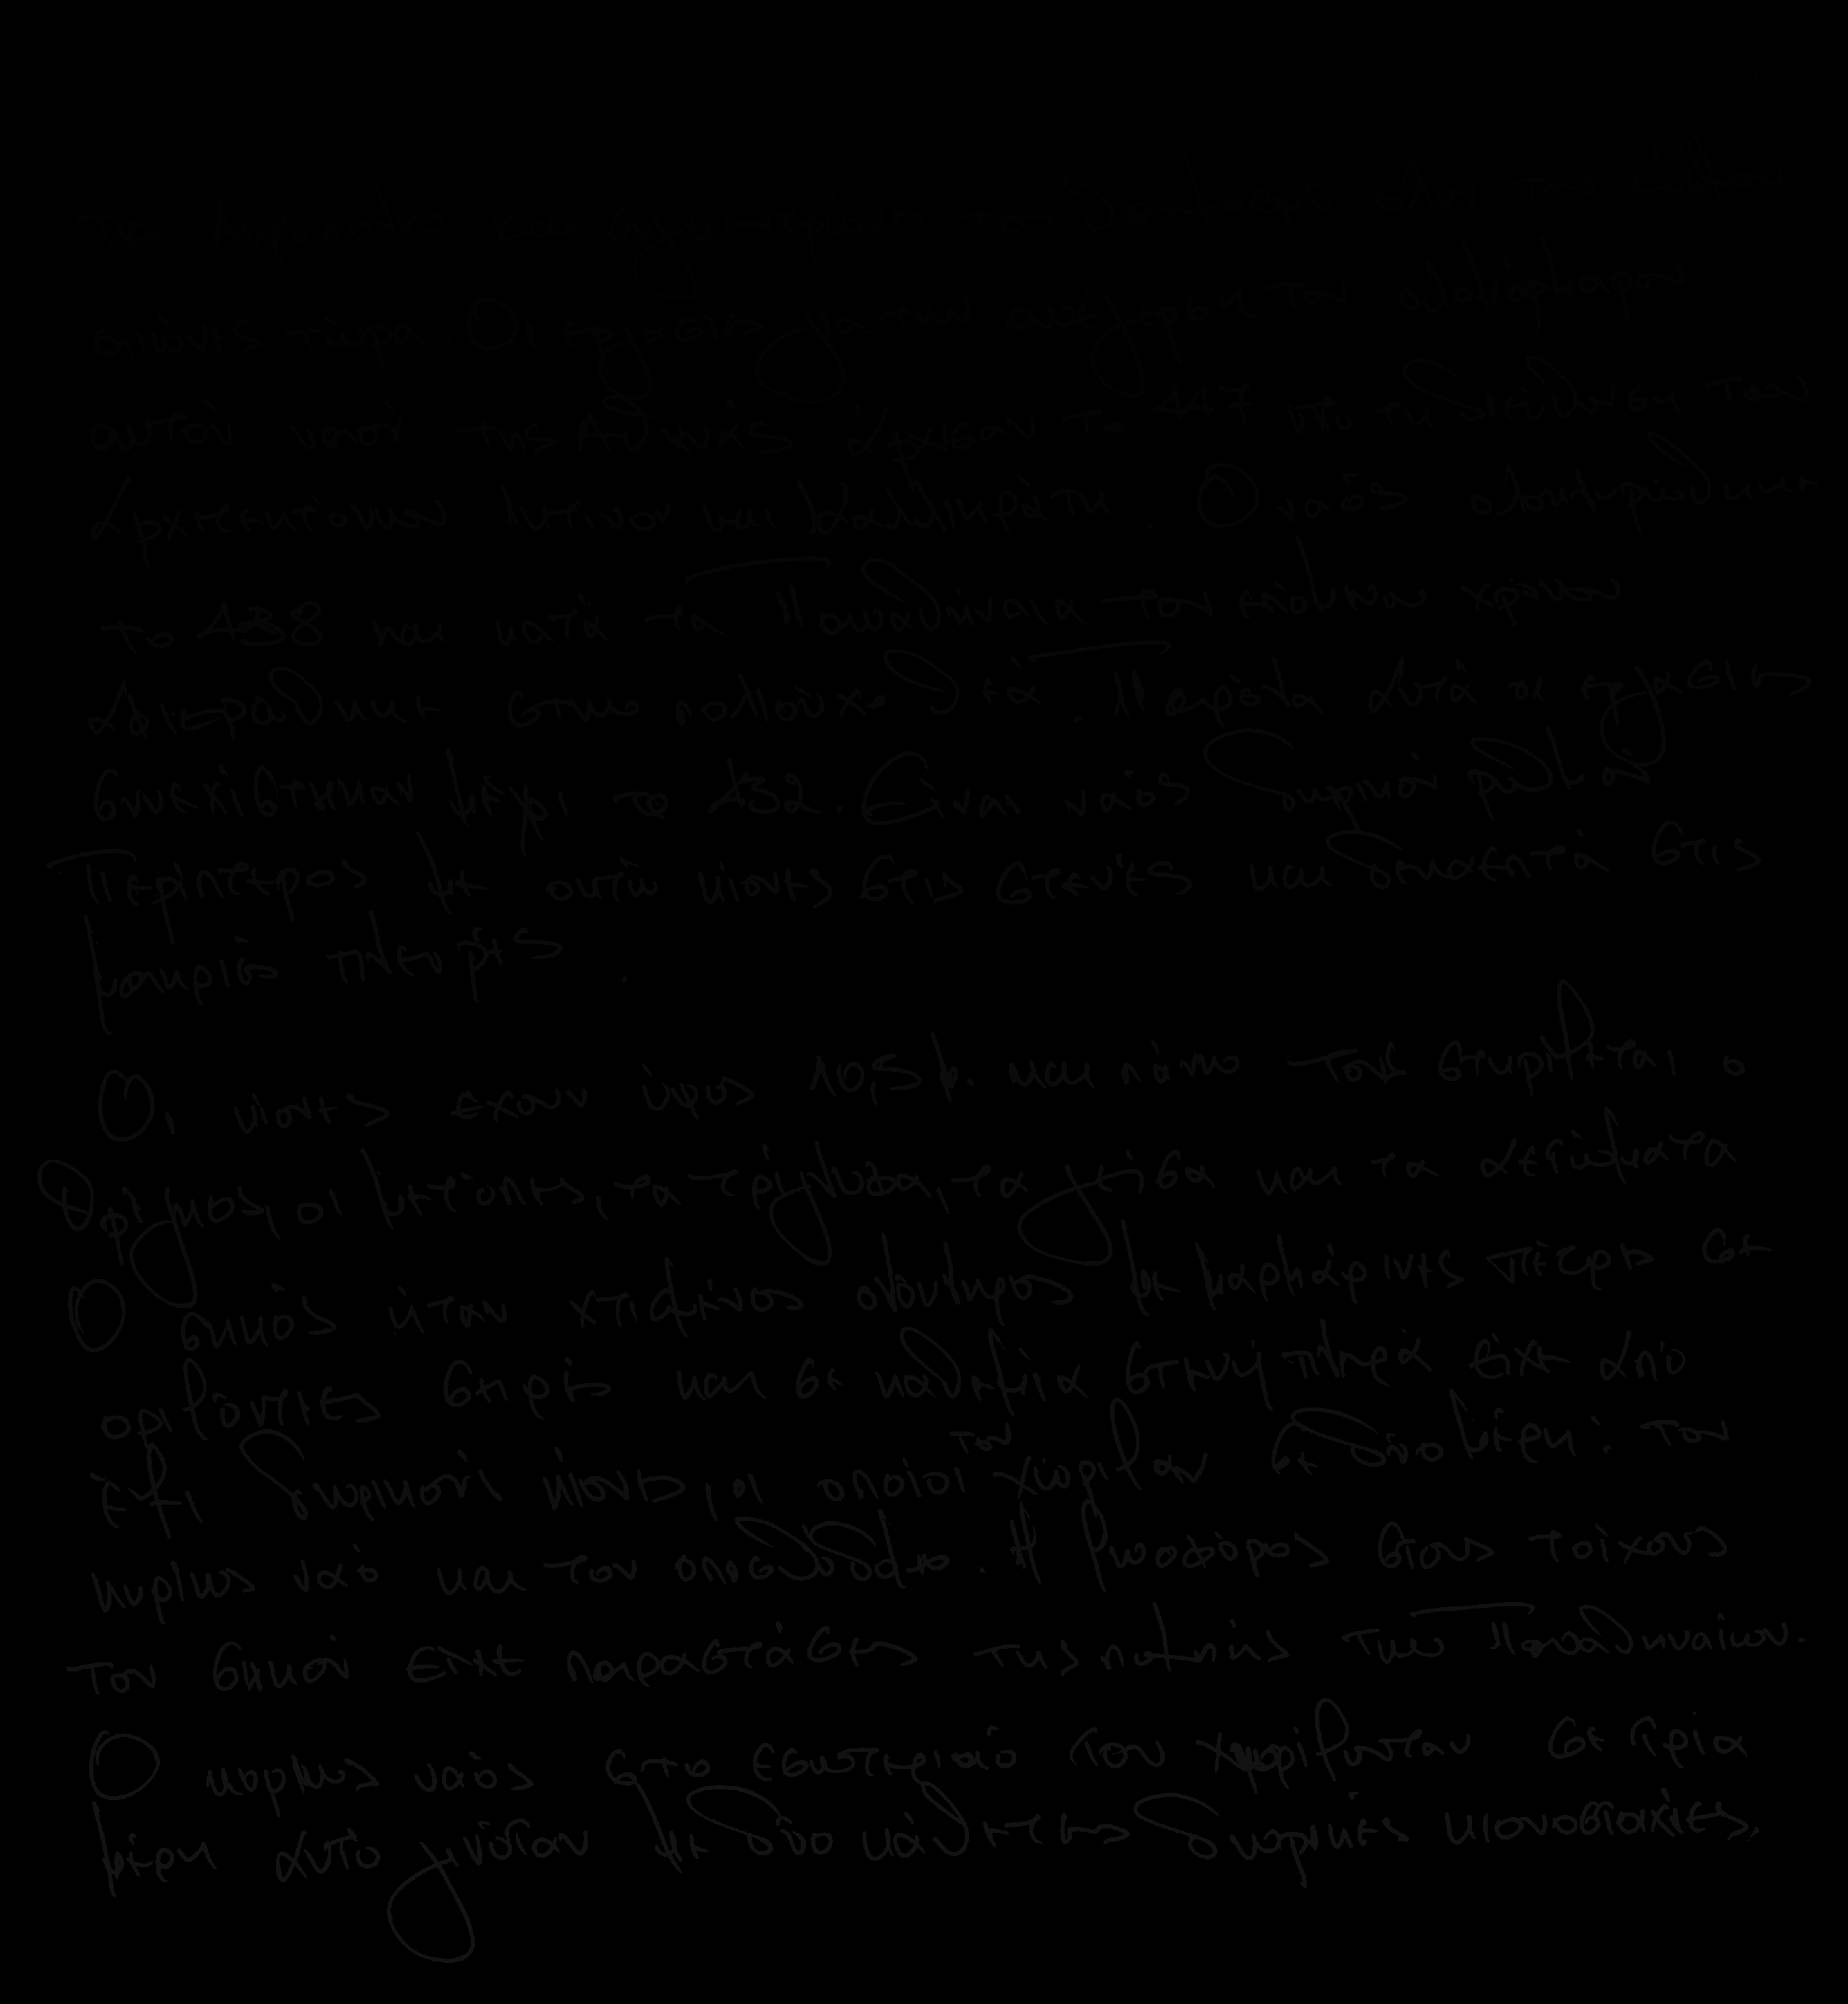 Ο Παρθενώνας
της Ακρόπολης και συγκεντρώνει τον θαυμασμό όλου του κόσμου
αιώνες τώρα. Οι εργασίες για την ανέγερση του ολομάρμαρου
αυτού ναού της Αθηνάς άρχισαν το 447 υπό τη διεύθυνση των
Αρχιτεκτόνων Ικτίνου και Καλλικράτη. Ο ναός ολοκληρώθηκε
το 438 και κατά τα Παναθήναια του επόμενου χρόνου
Αφιερώθηκε στην πολιούχο θεά. Παρόλα αυτά οι εργασίες
συνεχίστηκαν μέχρι το 432. Είναι ναός Δωρικού ρυθμού
Περίπτερος με οκτώ κίονες στις στενές και δεκαεπτά στις
μακριές πλευρές.
Οι κίονες έχουν ύψος 10,5 μ. και πάνω τους στηρίζεται ο
θριγκος, οι μετόπες, τα τρίγλυφα, τα γείσα και τα αετώματα
Ο σηκός ήταν χτισμένος ολόκληρος με μαρμάρινες πέτρες σε
οριζόντιες σειρές και σε καθεμία στενή πλευρά είχε από
έξι δωρικού κίονες, οι οποίοι τον χώριζαν σε δύο μέρη: τον
κυρίως ναό και τον οπισθόδομο. Η ζωοφόρος στους τοίχους
του σηκού είχε παραστάσεις της πομπής των Παναθηναίων.
Ο κυρίως ναός στο εσωτερικό του χωρίζονταν σε τρία
μέρη αυτό γινόταν με δύο κάθετες δωρικές κιονοστοιχίες.